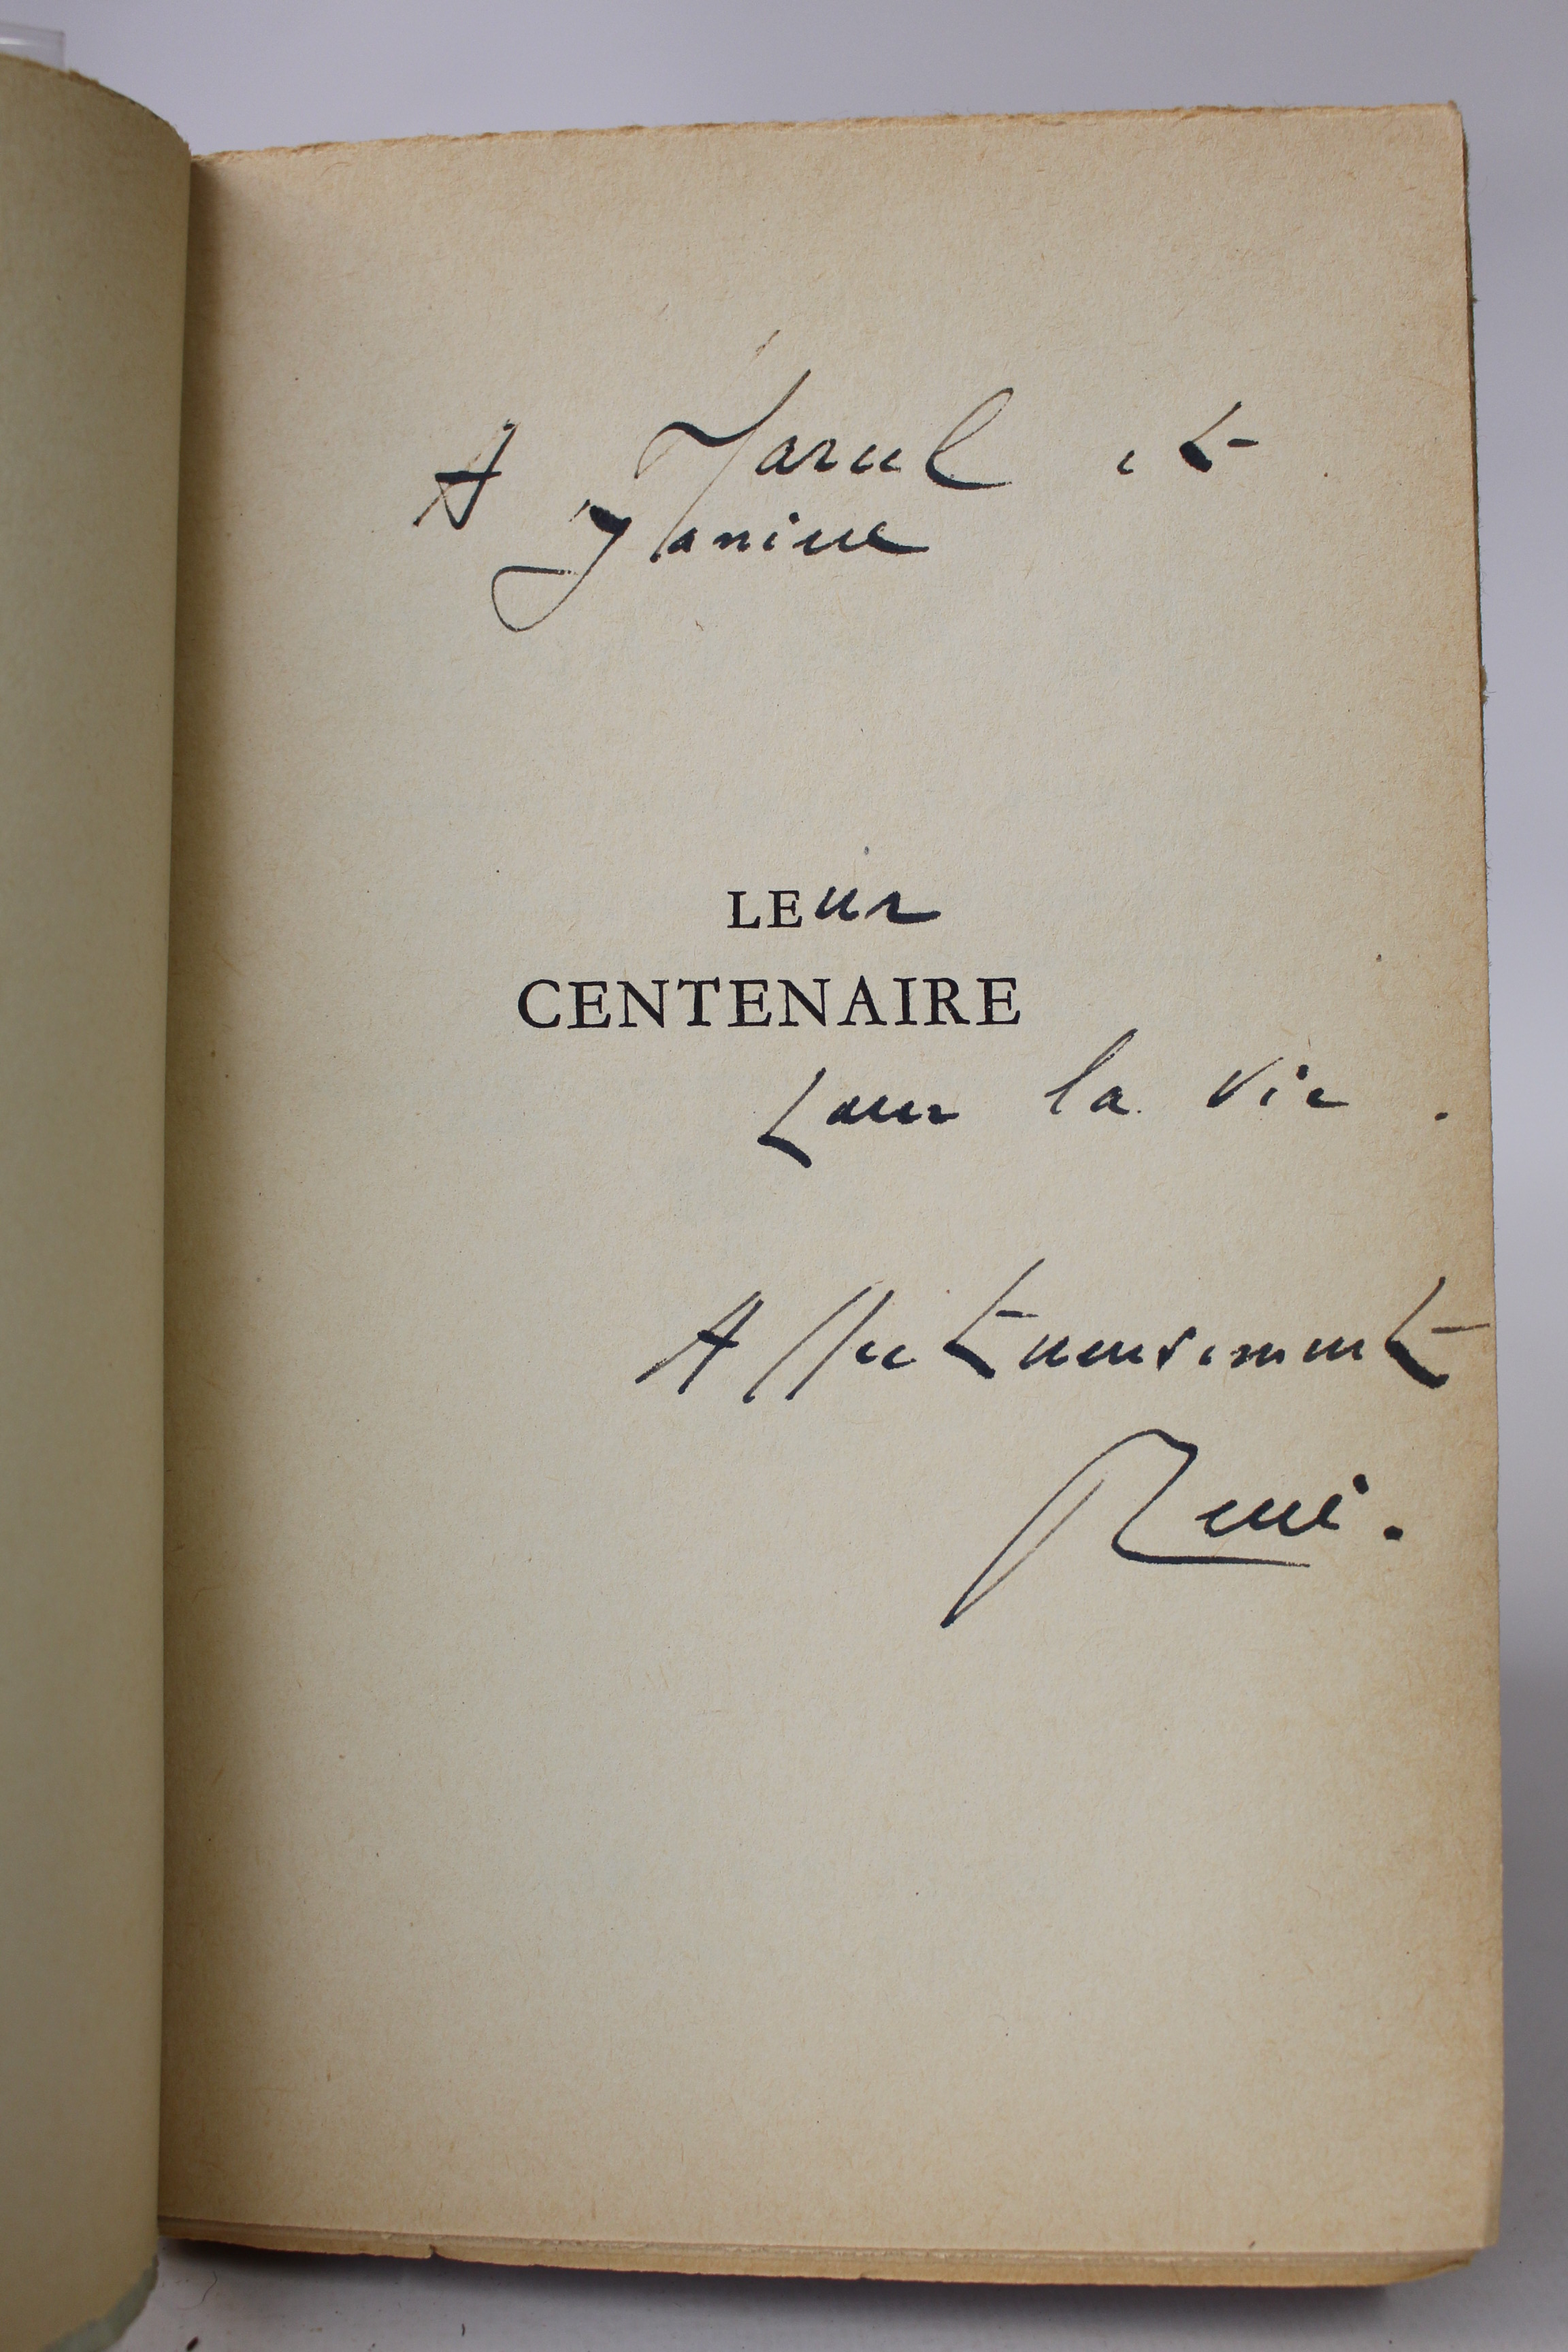 A Marcel et
Janine
LEur
CENTENAIRE
pour la vie.
Affectueusement
René.